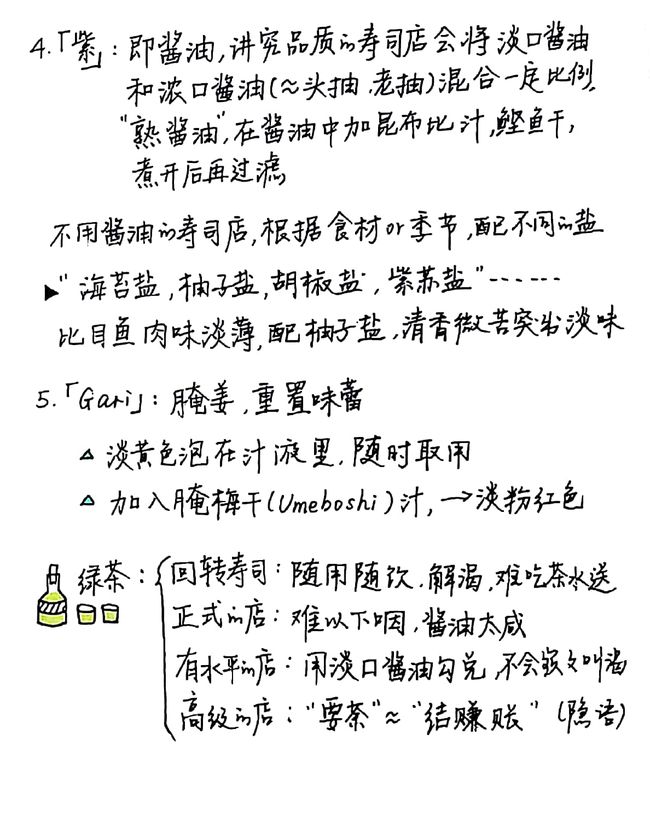 4.「紫」:即酱油,讲究品质的寿司店会将淡口酱油
和浓口酱油(≈头抽.老抽)混合一定比例.
"熟酱油",在酱油中加昆布比汁,鲣鱼干,
煮开后再过滤
不用酱油的寿司店,根据食材or季节,配不同的盐
▶"海苔盐,柚子盐,胡椒盐,紫苏盐"------
比目鱼肉味淡薄,配柚子盐,清香微苦突出淡味
5.「Gari」:腌姜,重置味蕾
△ 淡黄色泡在汁液里,随时取用
△ 加入腌梅干(Umeboshi)汁,→淡粉红色
绿茶:{回转寿司:随用随饮.解渴,难吃茶水送
正式的店:难以下咽,酱油太咸
有水平的店:用淡口酱油勾兑,不会嗷叫渴
高级的店:"要茶"≈"结赚账"(隐语)